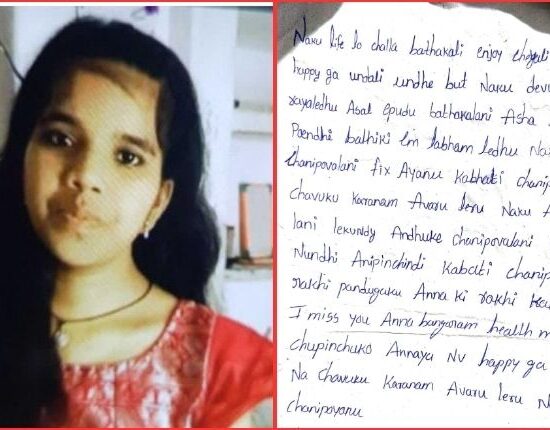 Naku life lo challa bathakali enjoy cheyali
happy ga undali undhe but Naku devu
rayaledhu Asal epudu bathakalani Asha
Poendhi bathiki em labham ledhu Na
chanipovalani fix Ayanu Kabbati chanip
chavuku Karanam Avaru leru Naku A
lani lekundy Andhuke chanipovalani
Nundhi Anipinchindi Kabati chanip
rakhi pandugaku Anna ki rakhi Ka
I miss you Anna bangaram health m
chupinchuko Annaya Nv happy ga
Na Chavuku Karanam Avaru leru N
chanipoyanu